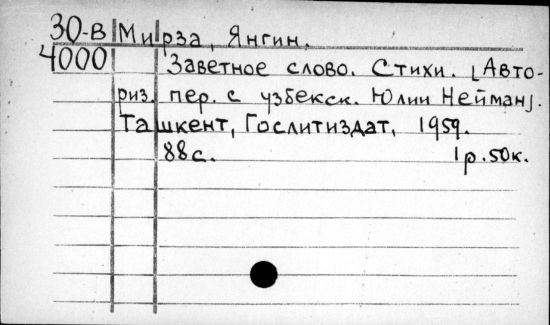 30-В Мирза, Янгин.
4000 Заветное слово. Стихи. [Авто-
риз. пер. с узбекск. Юлии Нейман].
Ташкент, Гослитиздат, 1959.
88с. 1р.50к.